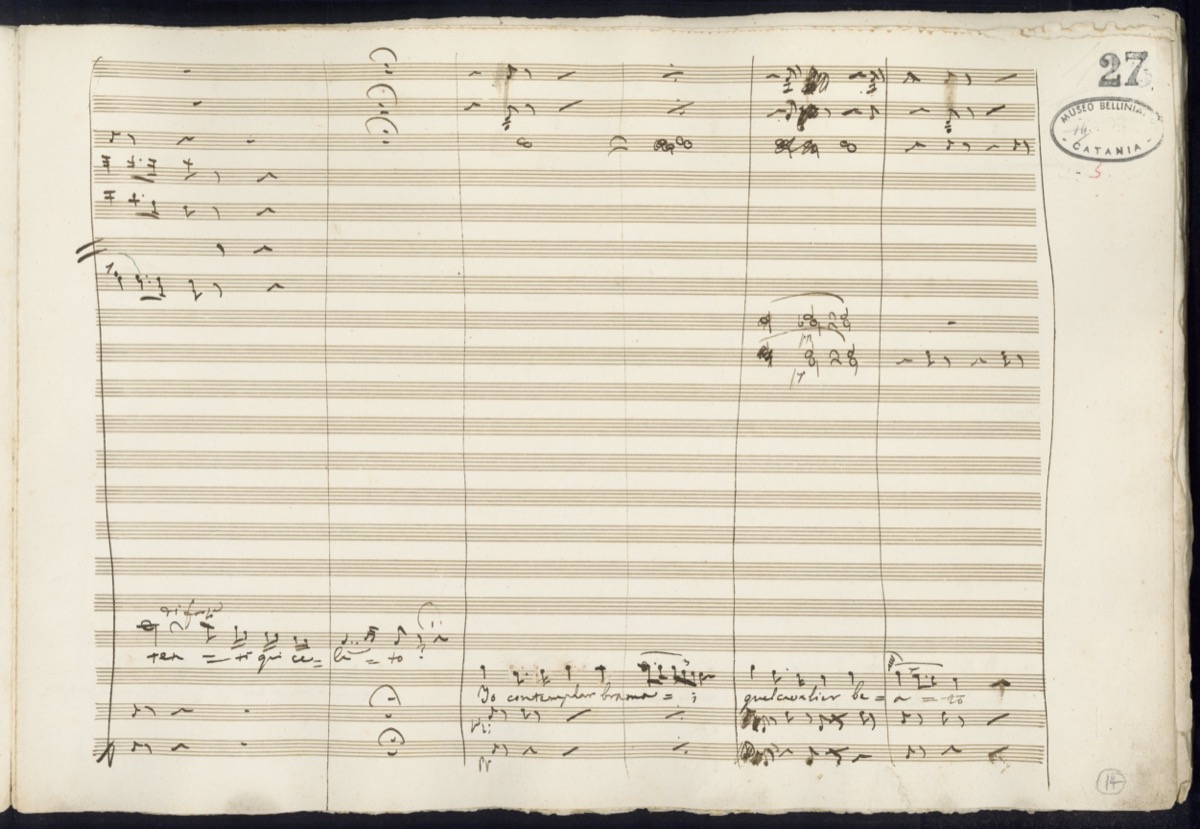 27
MUSEO BELLINIANO
CATANIA
3
riforza
ten = ti qui ce = la = to ?
Io contemplar bramo = i
quel cavalier be = a = to
14